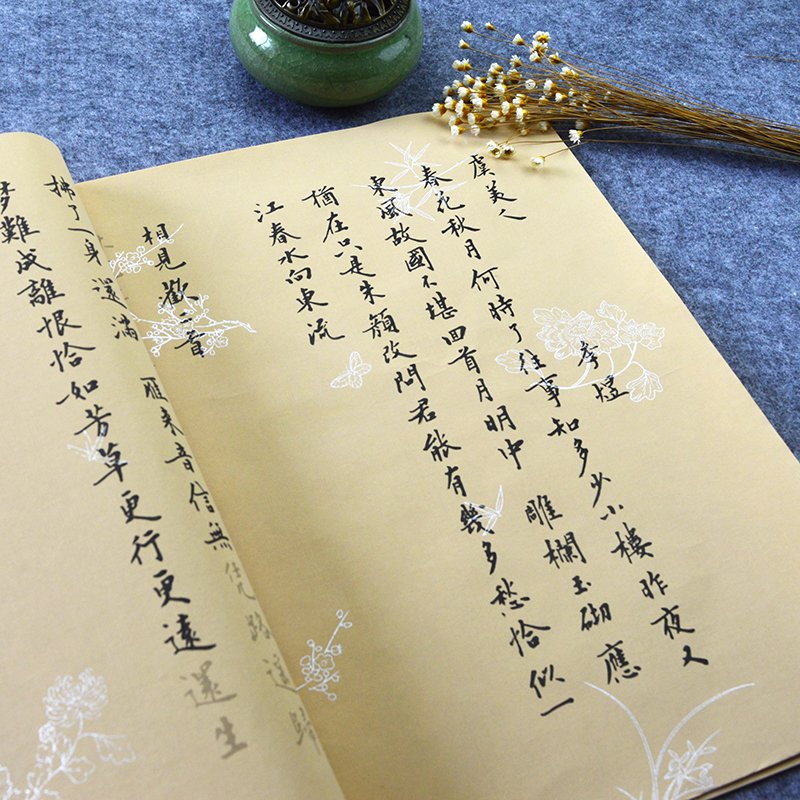 虞美人 李煜
春花秋月何時了往事知多少小樓昨夜又
東風故國不堪回首月明中 雕欄玉砌應
猶在只是朱顏改問君能有幾多愁恰似一
江春水向東流
相見歡二首
拂了一身還滿 雁來音信無憑路遙歸
夢難成離恨恰如芳草更行更遠還生